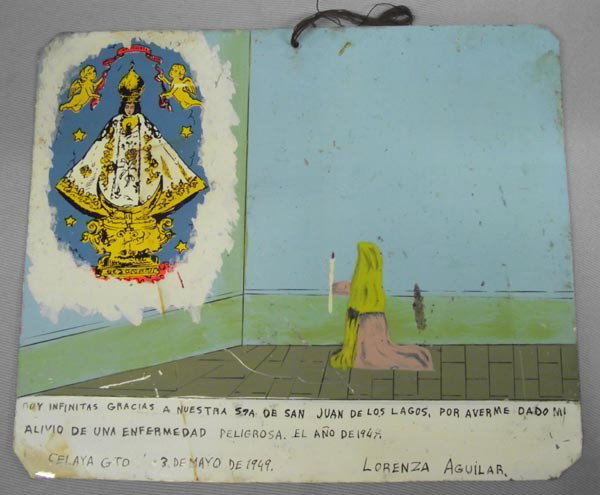 DOY INFINITAS GRACIAS A NUESTRA SRA DE SAN JUAN DE LOS LAGOS, POR AVERME DADO MI
ALIVIO DE UNA ENFERMEDAD PELIGROSA. EL AÑO DE 1947.
CELAYA GTO 3. DE MAYO DE 1949. LORENZA AGUILAR.